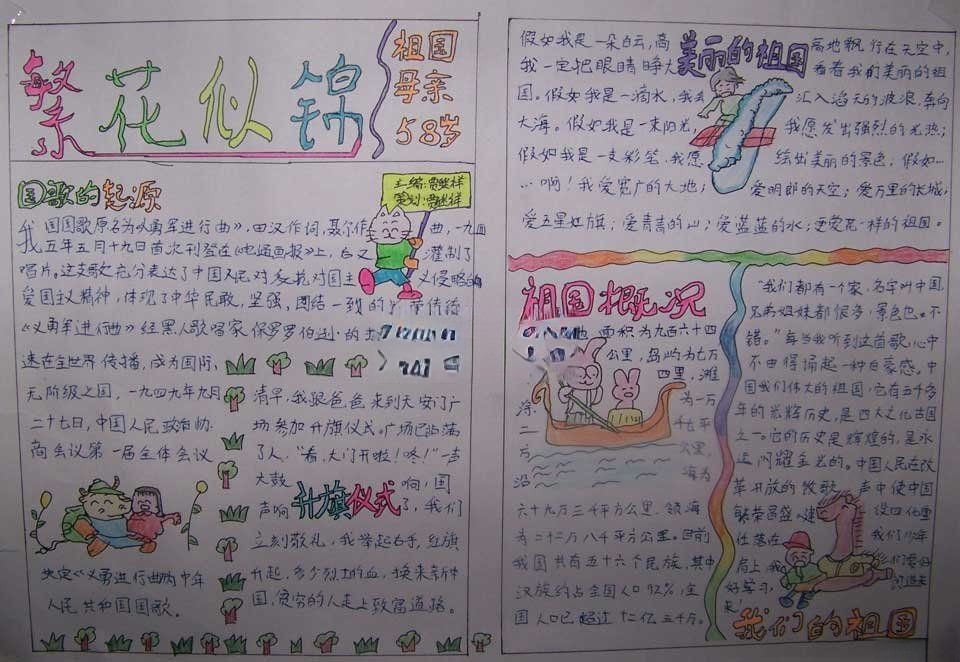 繁花似锦
祖国
母亲
58岁
国歌的起源
主编:
策划:
我国国歌原名为《义勇军进行曲》,田汉作词,聂尔作曲,一九三
五年五月十九日首次刊登在《电通画报》上,后又灌制了
唱片。这支歌充分表达了中国人民对 对国主义侵略的
爱国主义精神,体现了中华民敢,坚强,团结一致的
《义勇军进行曲》经黑人歌唱家保罗罗伯逊的
速在全世界传播,成为国际
无阶级之国,一九四九年九月
二十七日,中国人民政治协
商会议第一届全体会议
决定《义勇进行曲》为中华
人民共和国国歌。
清早,我跟爸爸来到天安门广
场参加升旗仪式。广场已站满
了人,“看,大门开啦!咚!”一声
大鼓响,国
声响了,我们
升旗仪式
立刻敬礼,我举起右手,红旗
升起,多少烈士的血,换来新中
国,贫穷的人走上致富道路。
美丽的祖国
假如我是一朵白云,高高地飘行在天空中,
我一定把眼睛睁大看看我们美丽的祖
国。假如我是一滴水,我汇入滔天的波浪,奔向
大海。假如我是一束阳光,我愿发出强烈的光热;
假如我是一支彩笔,我愿绘出美丽的景色;假如……
……啊!我爱宽广的大地;爱明郎的天空;爱万里的长城;
爱五星红旗;爱青青的山;爱蓝蓝的水;更爱花一样的祖国。
祖国概况
面积为九百六十四
公里,岛屿为七万
四里,滩
涂 为一万
二 千七平
万 公里,
沿 海为
六十九万三千平方公里。领海
为二十二万八千平方公里。目前
我国共有五十六个民族,其中
汉族约占全国人口92%,全
国人口已超过十二亿五千万。
“我们都有一个家,名字叫中国,
兄弟姐妹都很多,景色也不
错。”每当我听到这首歌,心中
不由得涌起一种自豪感。中
国我们伟大的祖国,它有五千多
年的光辉历史,是四大文化古国
之一。它的历史是辉煌的,是永
远闪耀金光的。中国人民在改
革开放的牧歌声中使中国
繁荣昌盛,建设四化重
任落在我们少年
肩上,我们要好
好学习,
来!
我们的祖国